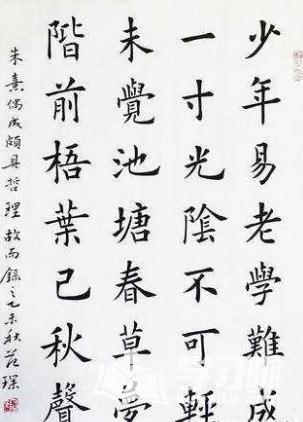 少年易老學難成
一寸光陰不可輕
未覺池塘春草夢
階前梧葉已秋聲
朱熹偶成頗具哲理故而錄之乙未秋范琛